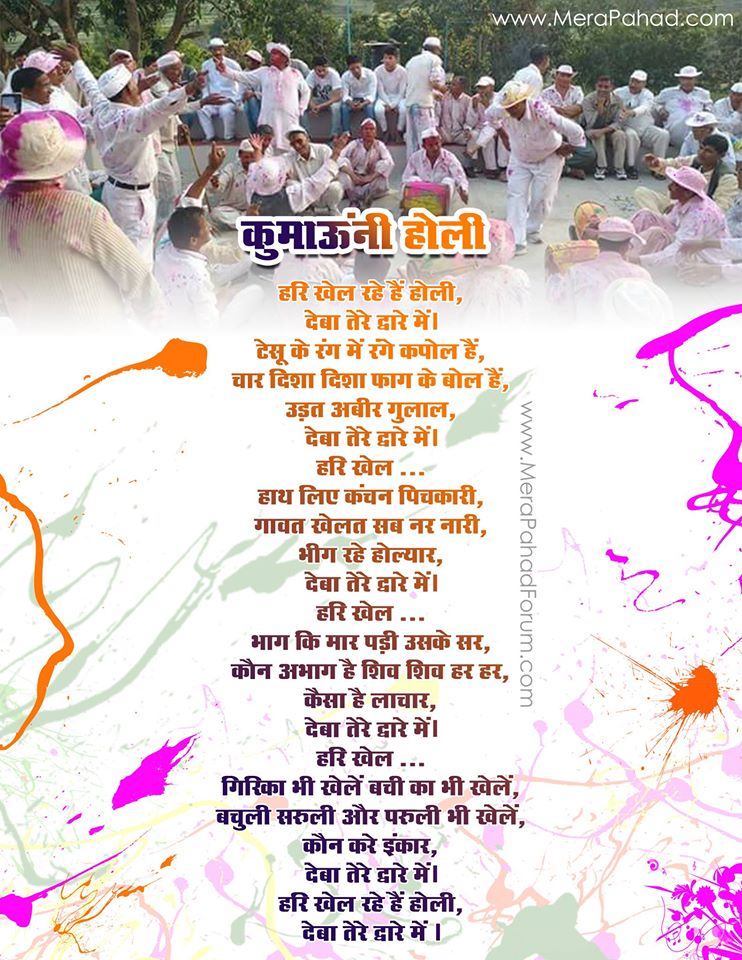 www.MeraPahad.com
कुमाऊंनी होली
हरि खेल रहे हैं होली,
देबा तेरे द्वारे में।
टेसू के रंग में रंगे कपोल हैं,
चार दिशा दिशा फाग के बोल हैं,
उड़त अबीर गुलाल,
देबा तेरे द्वारे में।
हरि खेल ...
हाथ लिए कंचन पिचकारी,
गावत खेलत सब नर नारी,
भीग रहे होल्यार,
देबा तेरे द्वारे में।
हरि खेल ...
भाग कि मार पड़ी उसके सर,
कौन अभाग है शिव शिव हर हर,
कैसा है लाचार,
देबा तेरे द्वारे में।
हरि खेल ...
गिरिका भी खेलें बची का भी खेलें,
बचुली सरुली और परुली भी खेलें,
कौन करे इंकार,
देबा तेरे द्वारे में।
हरि खेल रहे हैं होली,
देबा तेरे द्वारे में ।
www.MeraPahadForum.com